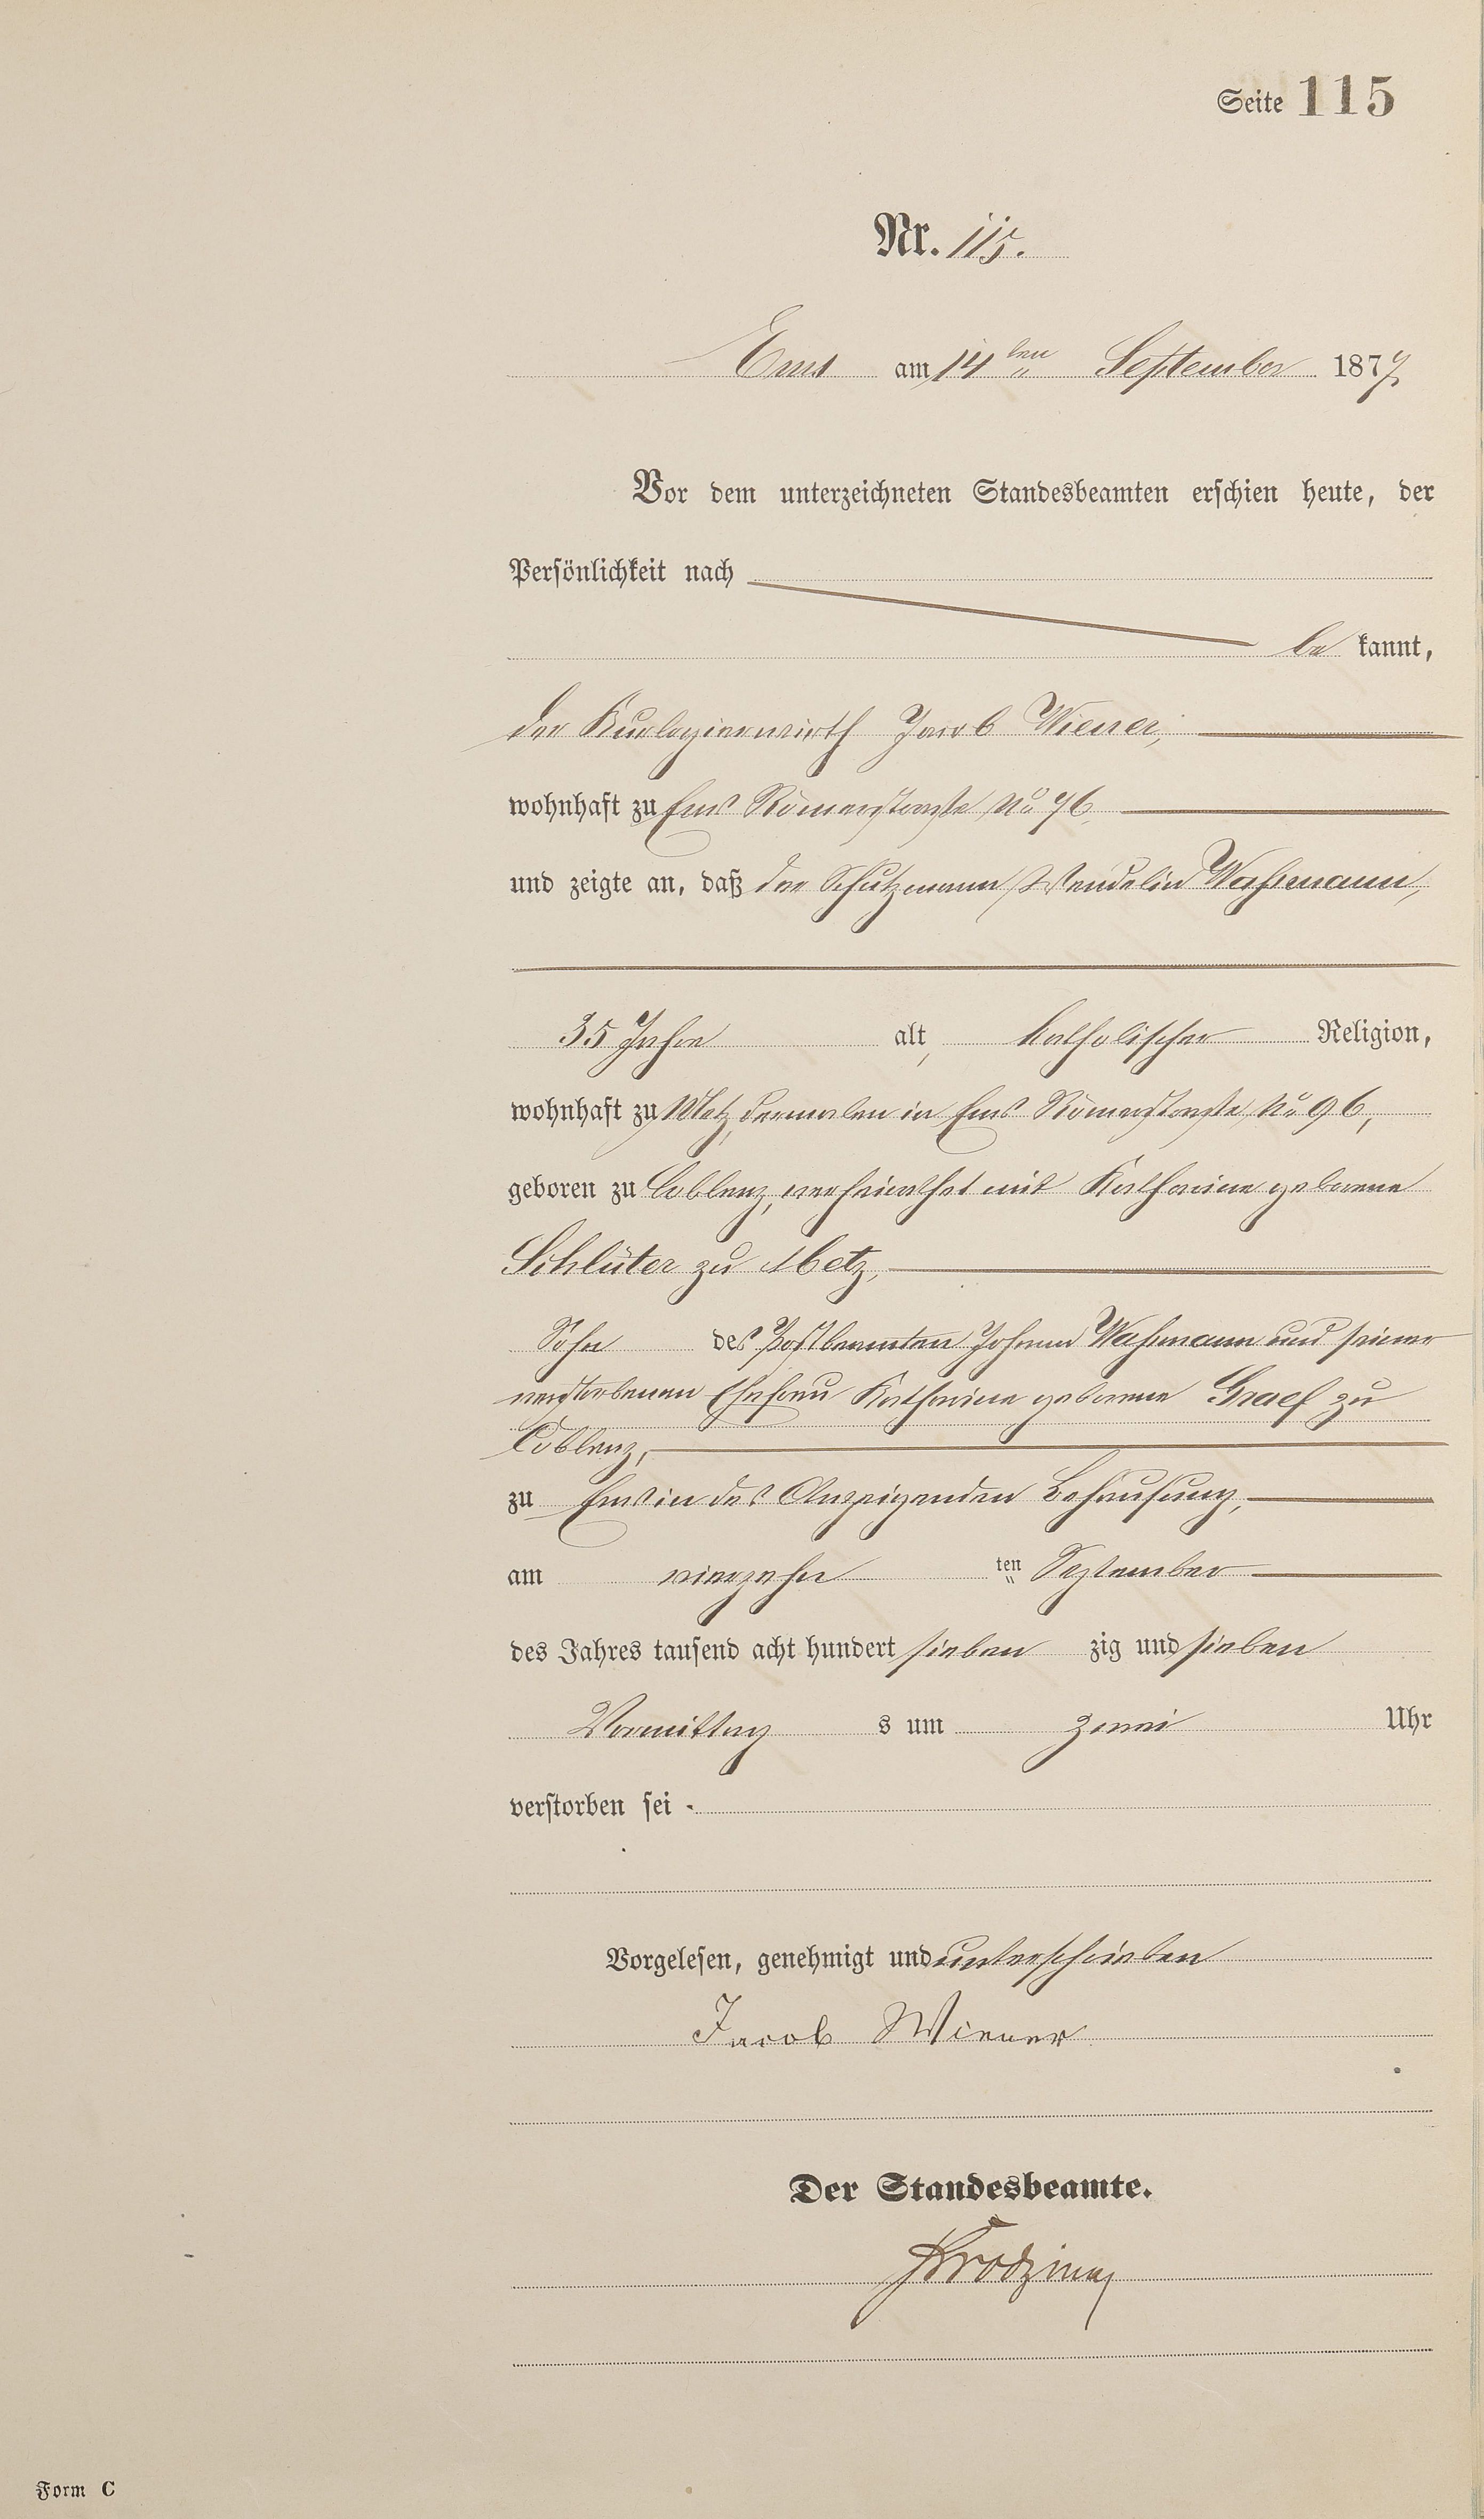 Seite 115
Nr. 115.
Ems am 14ten September 1877
Vor dem unterzeichneten Standesbeamten erschien heute, der
Persönlichkeit nach
be kannt,
der Kurlogierwirth Jacob Wiener,
wohnhaft zu Ems Römerstraße No 96
und zeigte an, daß der Schutzmann Wendelin Wahsmann,
35 Jahre alt, katholischer Religion,
wohnhaft zu Metz, dermalen in Ems Römerstraße No 96,
geboren zu Coblenz, verheirathet mit Katharina geborene
Schlüter zu Metz,
Sohn des Postbeamten Johann Wahsmann und seiner
verstorbenen Ehefrau Katharina geborene Graef zu
Coblenz,
zu Ems in des Anzeigenden Behausung,
am vierzehn ten September
des Jahres tausend acht hundert sieben zig und sieben
Vormittag s um zwei Uhr
verstorben sei.
Vorgelesen, genehmigt und unterschrieben
Jacob Wiener
Der Standesbeamte.
Form C